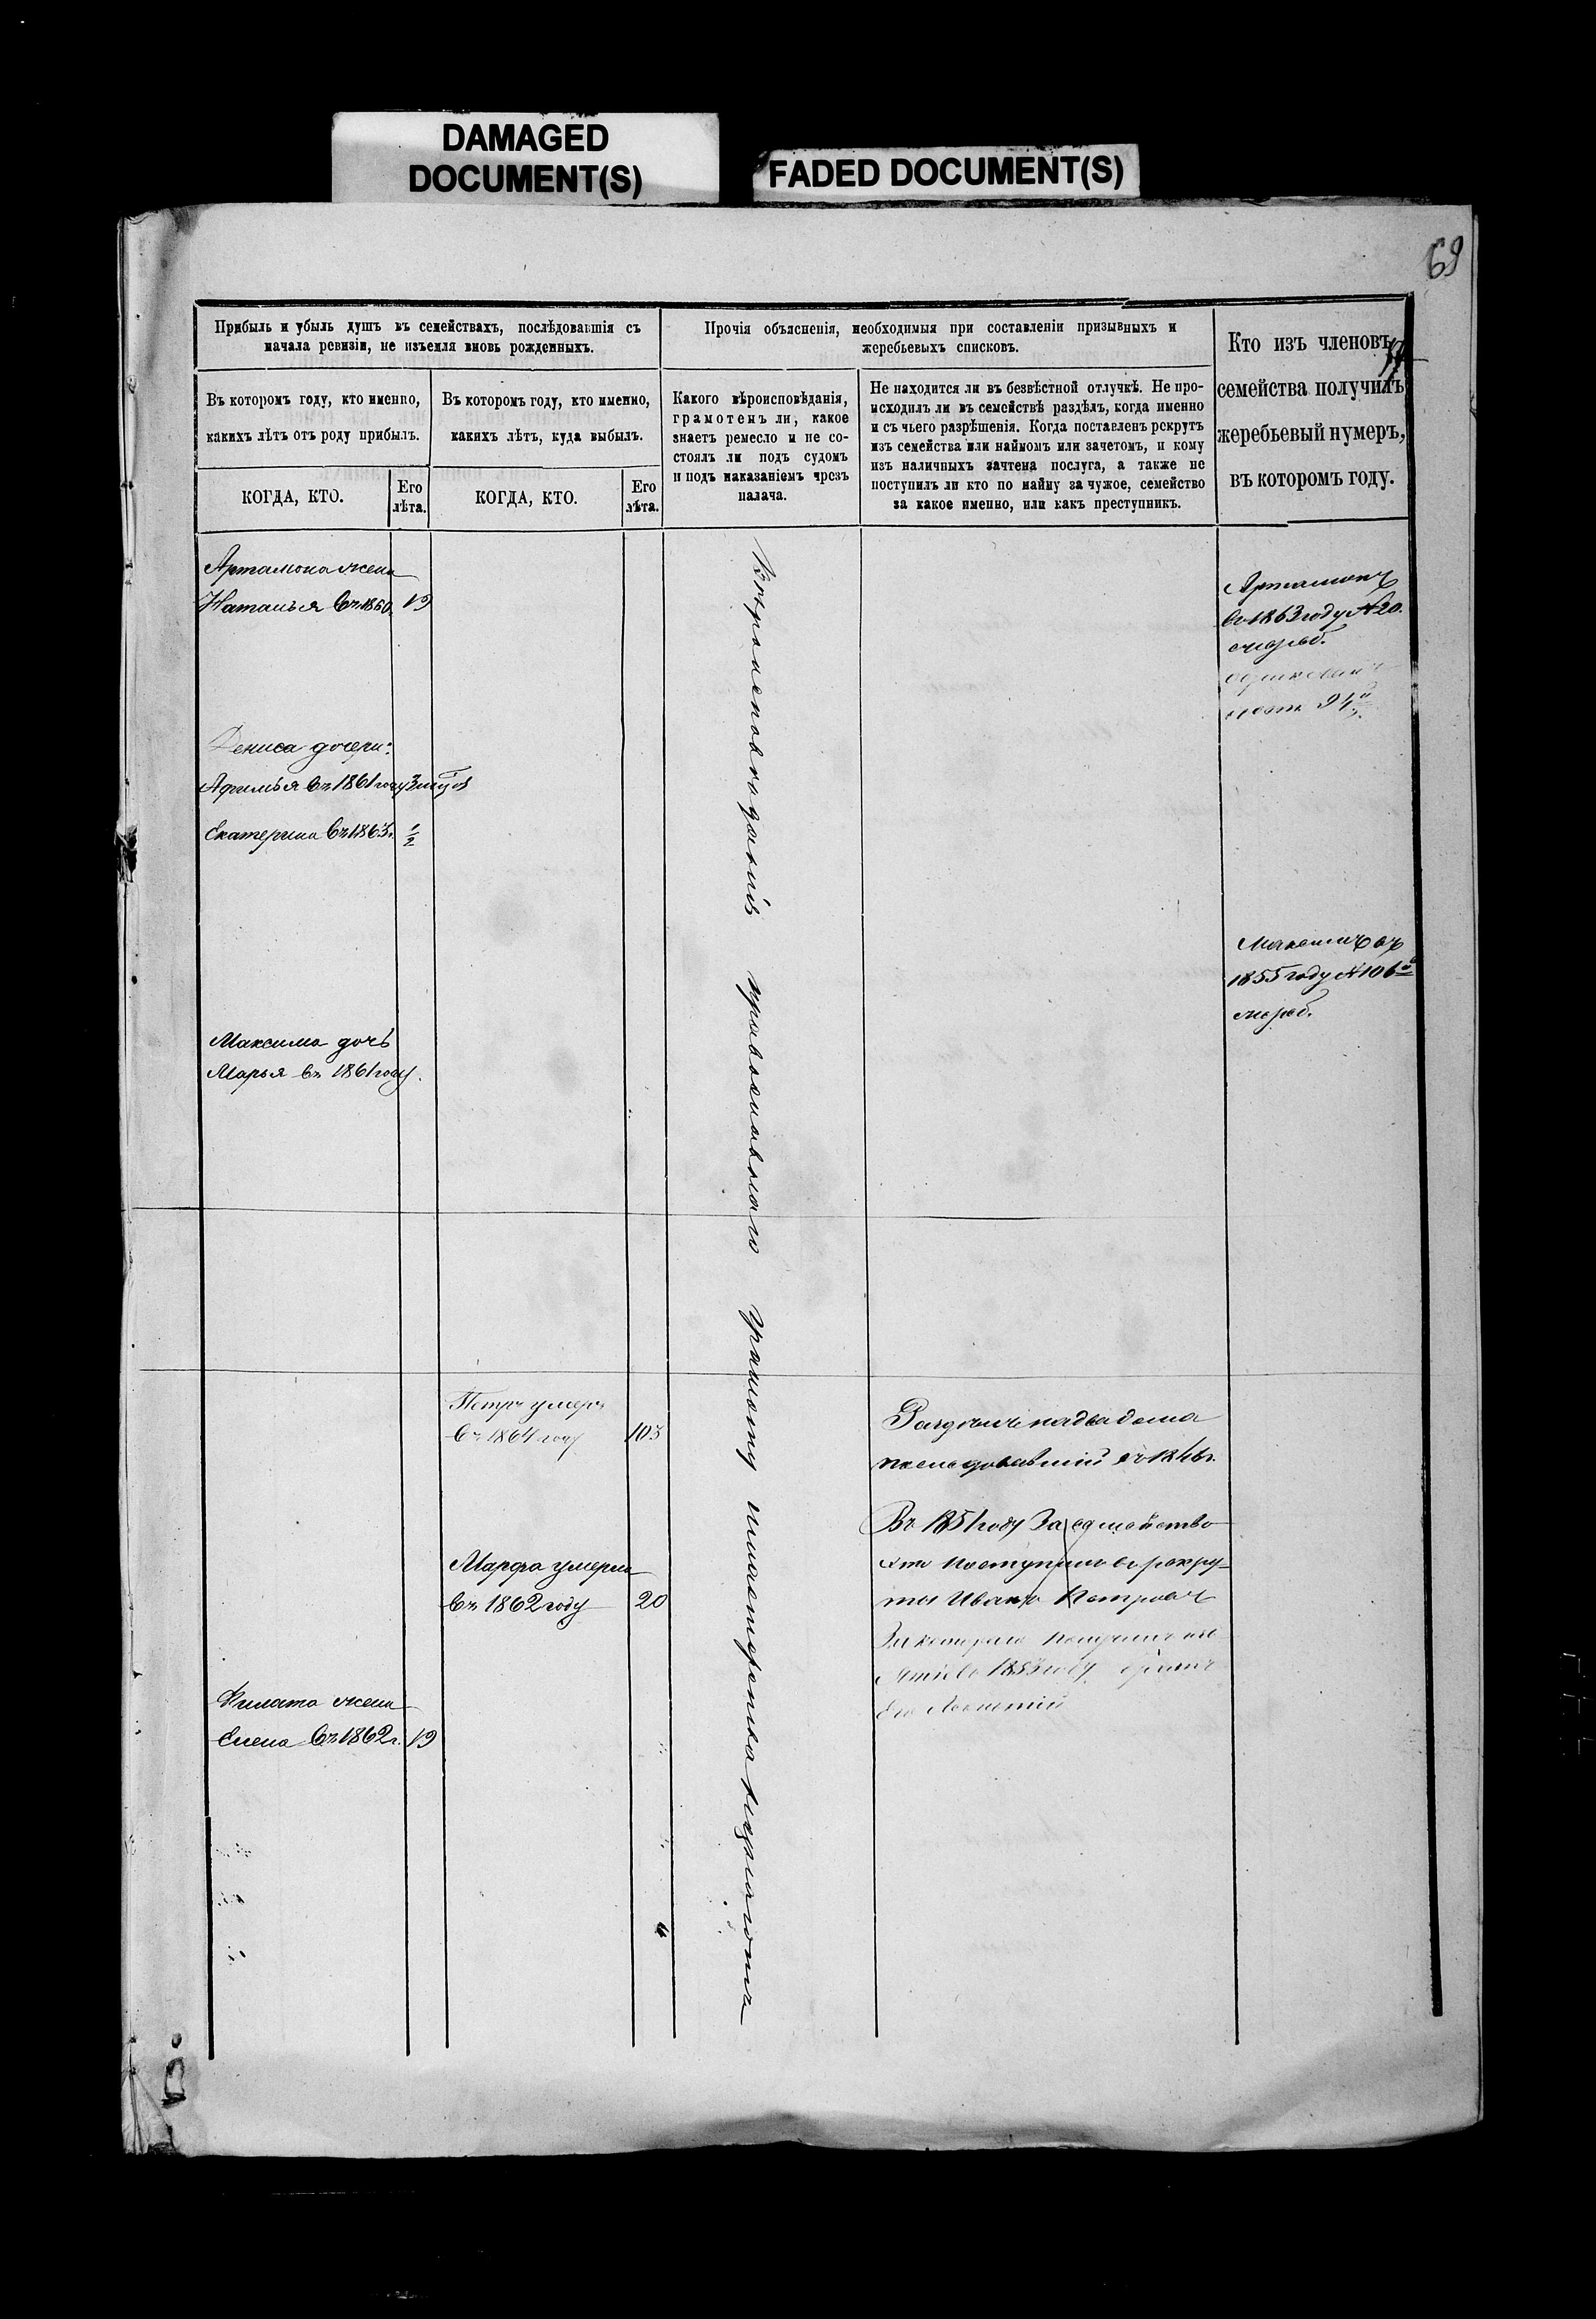 DAMAGED
DOCUMENT(S)
FADED DOCUMENT(S)
69
Прибыль и убыль душъ въ семействахъ, послѣдовавшія съ
начала ревизіи, не изъемля вновь рожденныхъ.
Въ которомъ году, кто именно,
какихъ лѣтъ отъ роду прибылъ.
КОГДА, КТО.
Его
лѣта.
Въ которомъ году, кто именно,
какихъ лѣтъ, куда выбылъ.
КОГДА, КТО.
Его
лѣта.
Прочія объясненія, необходимыя при составленіи призывныхъ и
жеребьевыхъ списковъ.
Какого вѣроисповѣданія,
грамотенъ ли, какое
знаетъ ремесло и не со-
стоялъ ли подъ судомъ
и подъ наказаніемъ чрезъ
палача.
Не находится ли въ безвѣстной отлучкѣ. Не про-
исходилъ ли въ семействѣ раздѣлъ, когда именно
и съ чьего разрѣшенія. Когда поставленъ рекрутъ
изъ семейства или наймомъ или зачетомъ, и кому
изъ наличныхъ зачтена послуга, а также не
поступилъ ли кто по найму за чужое, семейство
за какое именно, или какъ преступникъ.
Кто изъ членовъ
семейства получилъ
жеребьевый нумеръ,
въ которомъ году.
Артамона жена
Наталья въ 1860. 19
Дениса дочери:
Афимья въ 1861 году
Екатерина въ 1863г. 1/2
Максима дочь
Марья въ 1861 году.
Филата жена
Елена въ 1862г. 19
Петръ умеръ
въ 1864 году 103
Марфа умерла
въ 1862 году 20
Вѣроисповѣданія православнаго грамоту
Раздѣлъ на два дома
последовавшій въ 1846г.
Въ 1851 году За семейство
это поступилъ въ рекру-
ты Иванъ Петровъ
1853 году
Его
Артамонъ
въ 1863 году №20.
жереб.
94й
Максимъ въ
1855 году №106й
жереб.